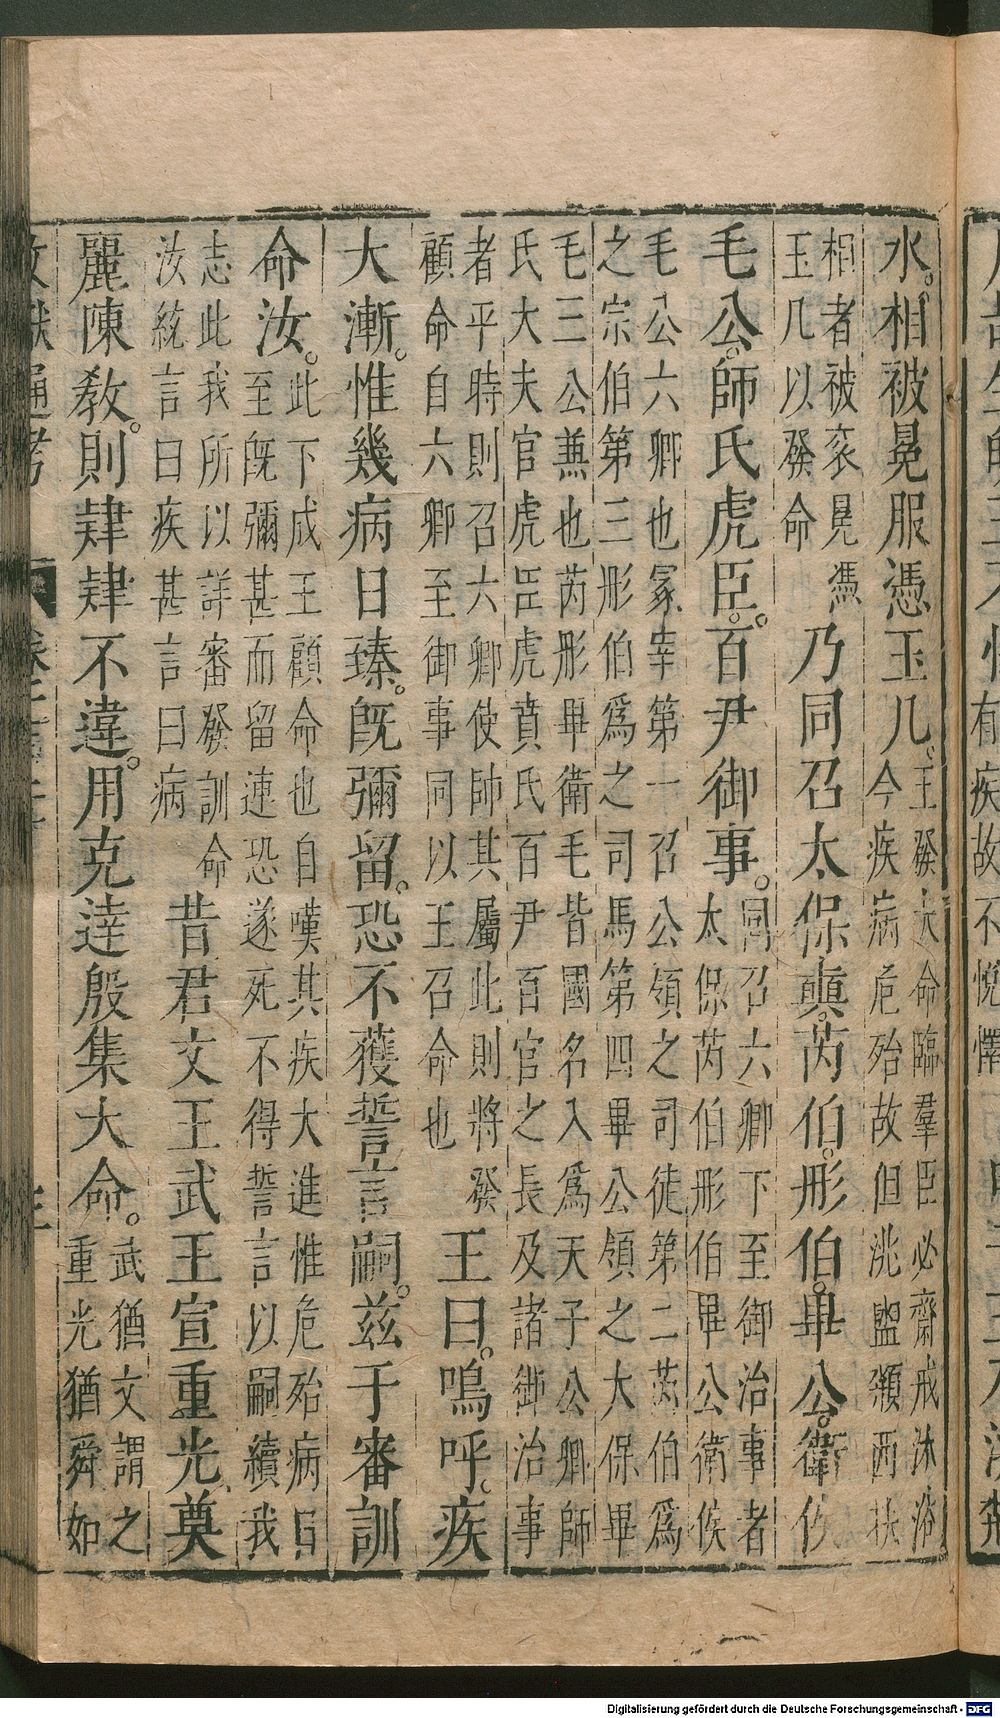 水相被冕服憑玉几王發大命臨羣臣必齋戒沐浴
今疾病危殆故但洮盥頮面扶
相者被衮冕憑
玉几以發命
乃同召太保奭芮伯彤伯畢公衛侯
毛公師氏虎臣百尹御事同召六卿下至御治事者
太保芮伯彤伯畢公衛侯
毛公六卿也冢宰第一召公領之司徒第二芮伯爲
之宗伯第三彤伯爲之司馬第四畢公領之大保畢
毛三公兼也芮彤畢衛毛皆國名入爲天子公卿師
氏大夫官虎臣虎賁氏百尹百官之長及諸御治事
者平時則召六卿使師其屬此則將發
顧命自六卿至御事同以王召命也
王曰嗚呼疾
大漸惟幾病日臻既彌留恐不獲誓言嗣兹于審訓
命汝此下成王顧命也自嘆其疾大進惟危殆病日
至既彌甚而留連恐遂死不得誓言以嗣續我
志此我所以詳審發訓命
汝統言曰疾甚言曰病
昔君文王武王宣重光奠
麗陳敎則肄肄不違用克達殷集大命武猶文謂之
重光猶舜如
文獻通考
Digitalisierung gefördert durch die Deutsche Forschungsgemeinschaft - DFG